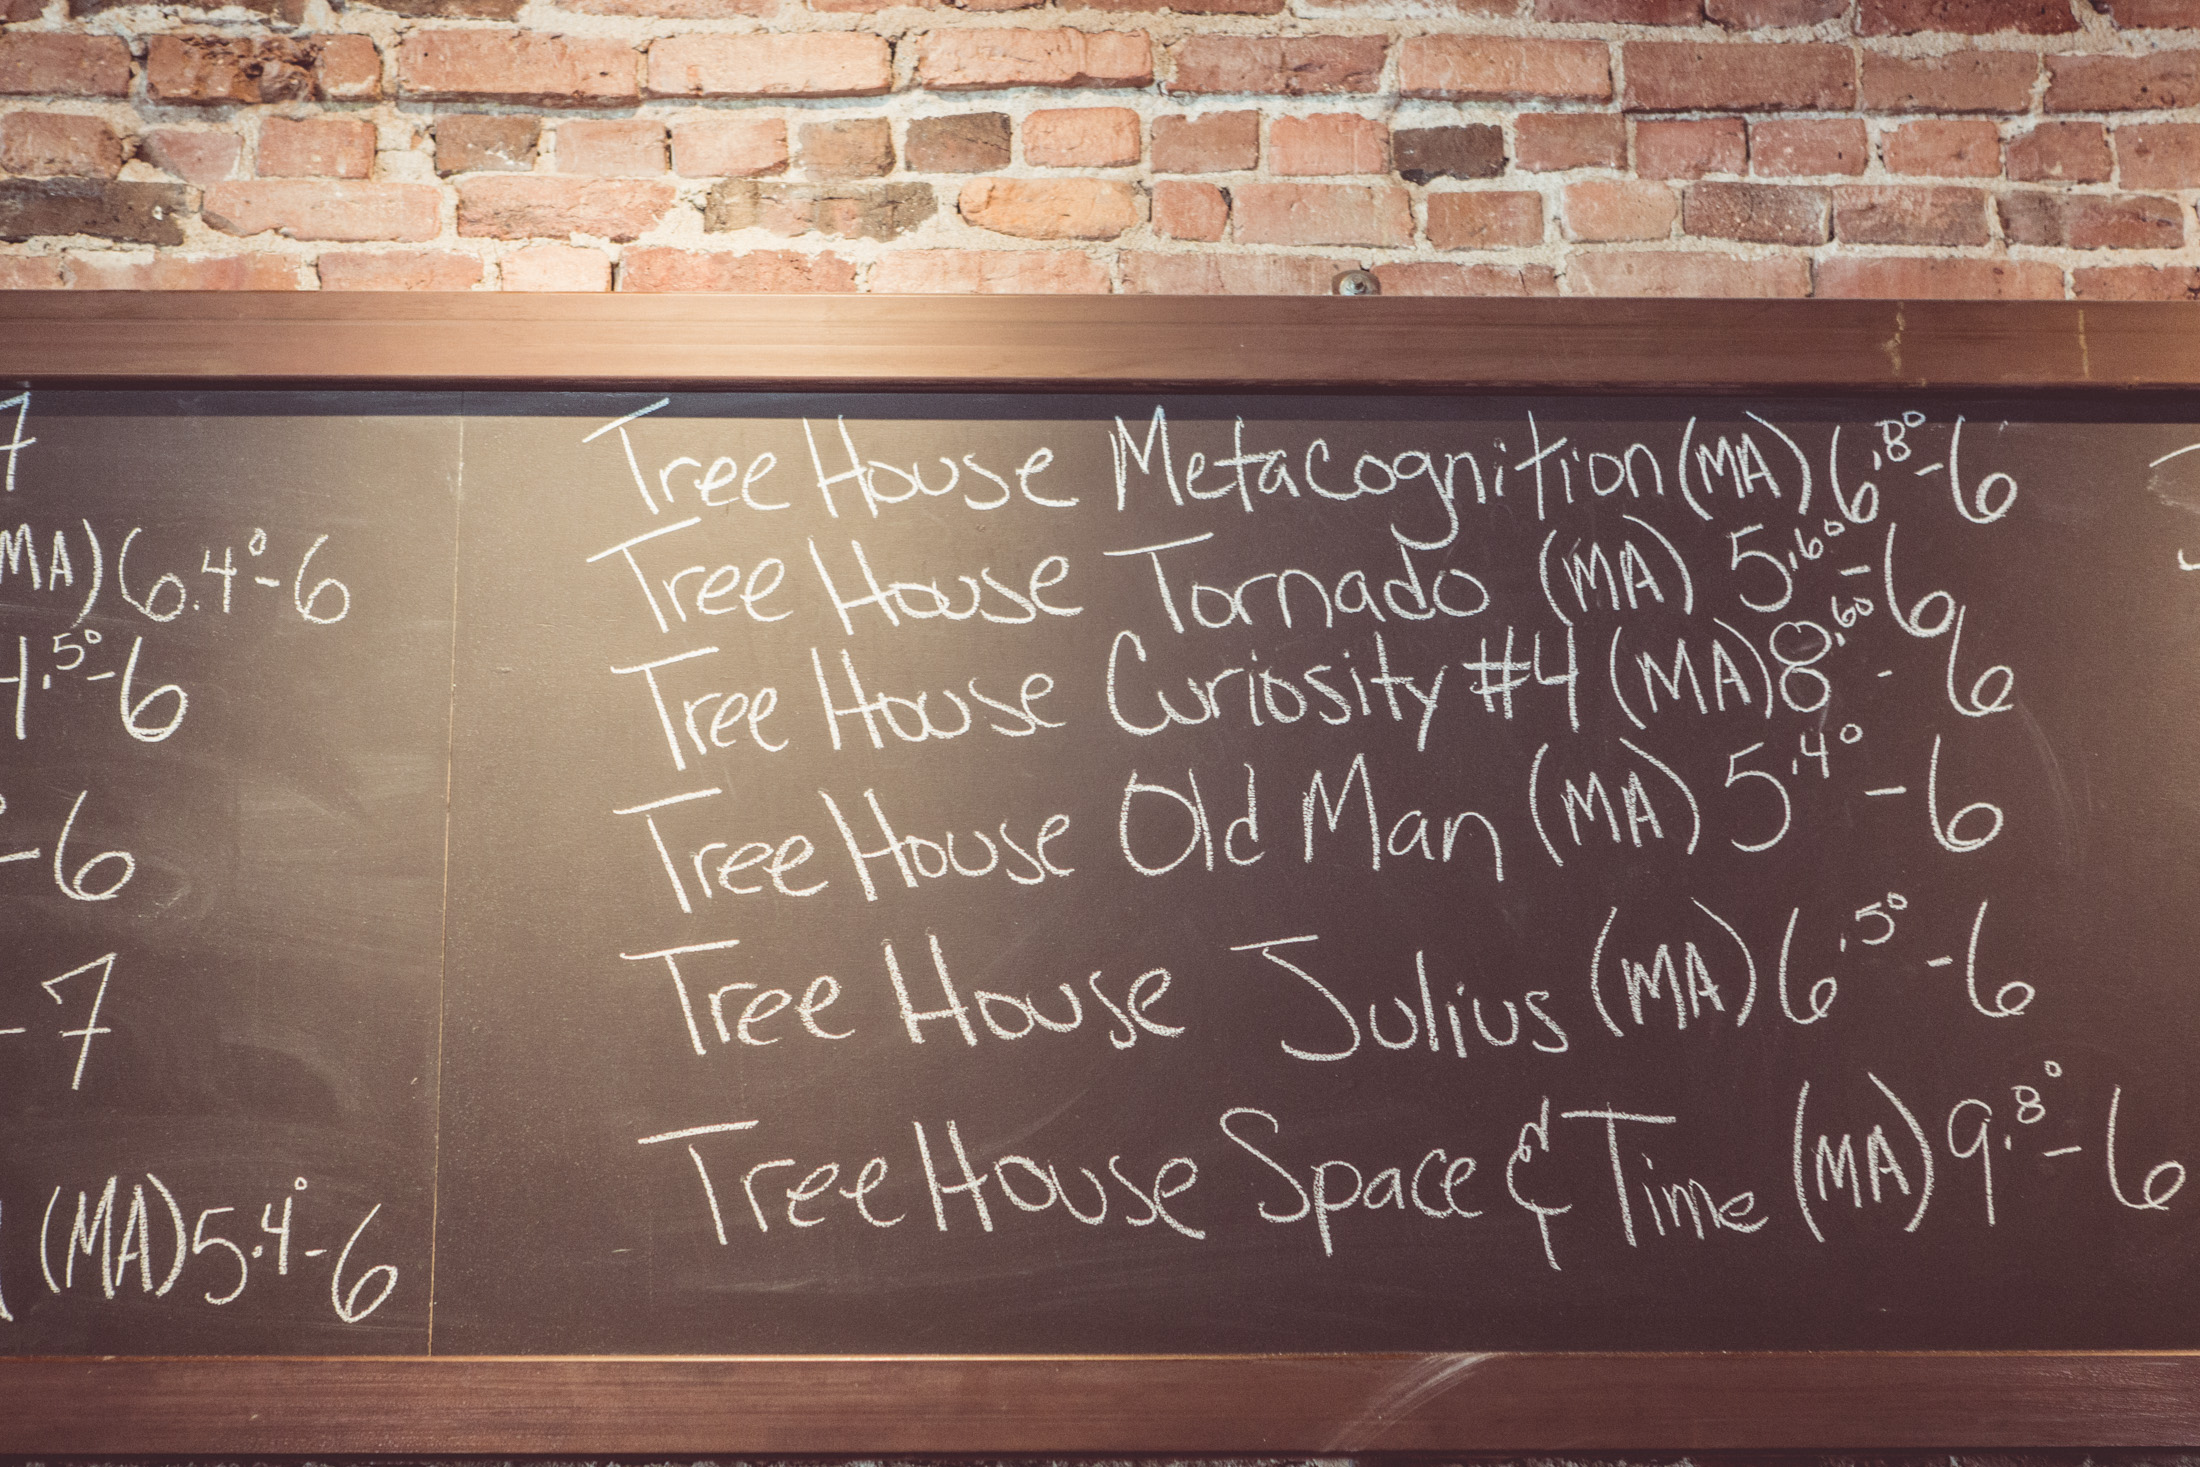 7
MA) 6.4° - 6
.5° - 6
- 6
- 7
(MA) 5.4° - 6
Tree House Metacognition (MA) 6.8° - 6
Tree House Tornado (MA) 5.6° - 6
Tree House Curiosity #4 (MA) 8.6° - 6
Tree House Old Man (MA) 5.4° - 6
Tree House Julius (MA) 6.5° - 6
Tree House Space & Time (MA) 9.8° - 6